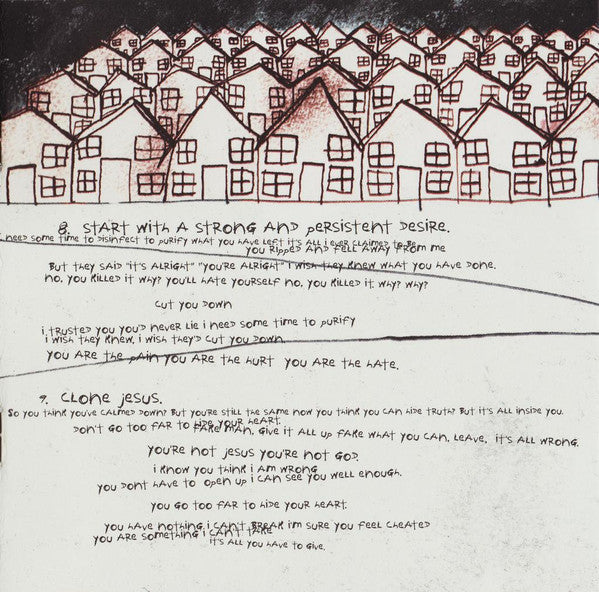 8. Start with a strong and persistent desire.
i need some time to disinfect to purify what you have left it's all i ever claimed to be
you ripped and fell away from me
But they said "it's alright" "you're alright" i wish they knew what you have done.
no, you killed it why? you'll hate yourself no, you killed it why? why?
Cut you down
i trusted you you'd never lie i need some time to purify
i wish they knew, i wish they'd cut you down.
you are the pain you are the hurt you are the hate.
9. Clone Jesus.
So you think you've calmed down? But you're still the same now you think you can hide truth? But it's all inside you.
Don't go too far to hide your heart.
fake man, give it all up fake what you can, leave, it's all wrong.
you're not jesus you're not god.
i know you think i am wrong
you dont have to open up i can see you well enough.
you go too far to hide your heart.
you have nothing i can't break i'm sure you feel cheated
you are something i can't take
it's all you have to give.